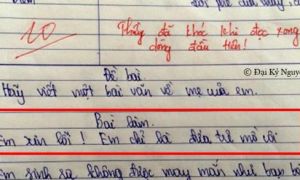 10
Thầy đã khóc khi đọc xong
dòng đầu tiên!
© Đại Kỷ Nguyê
Đề bài:
Hãy viết một bài văn về mẹ của em.
Bài làm.
Em xin lỗi! Em chỉ là đứa trẻ mồ côi
Em sinh ra không được may mắn như bạn b